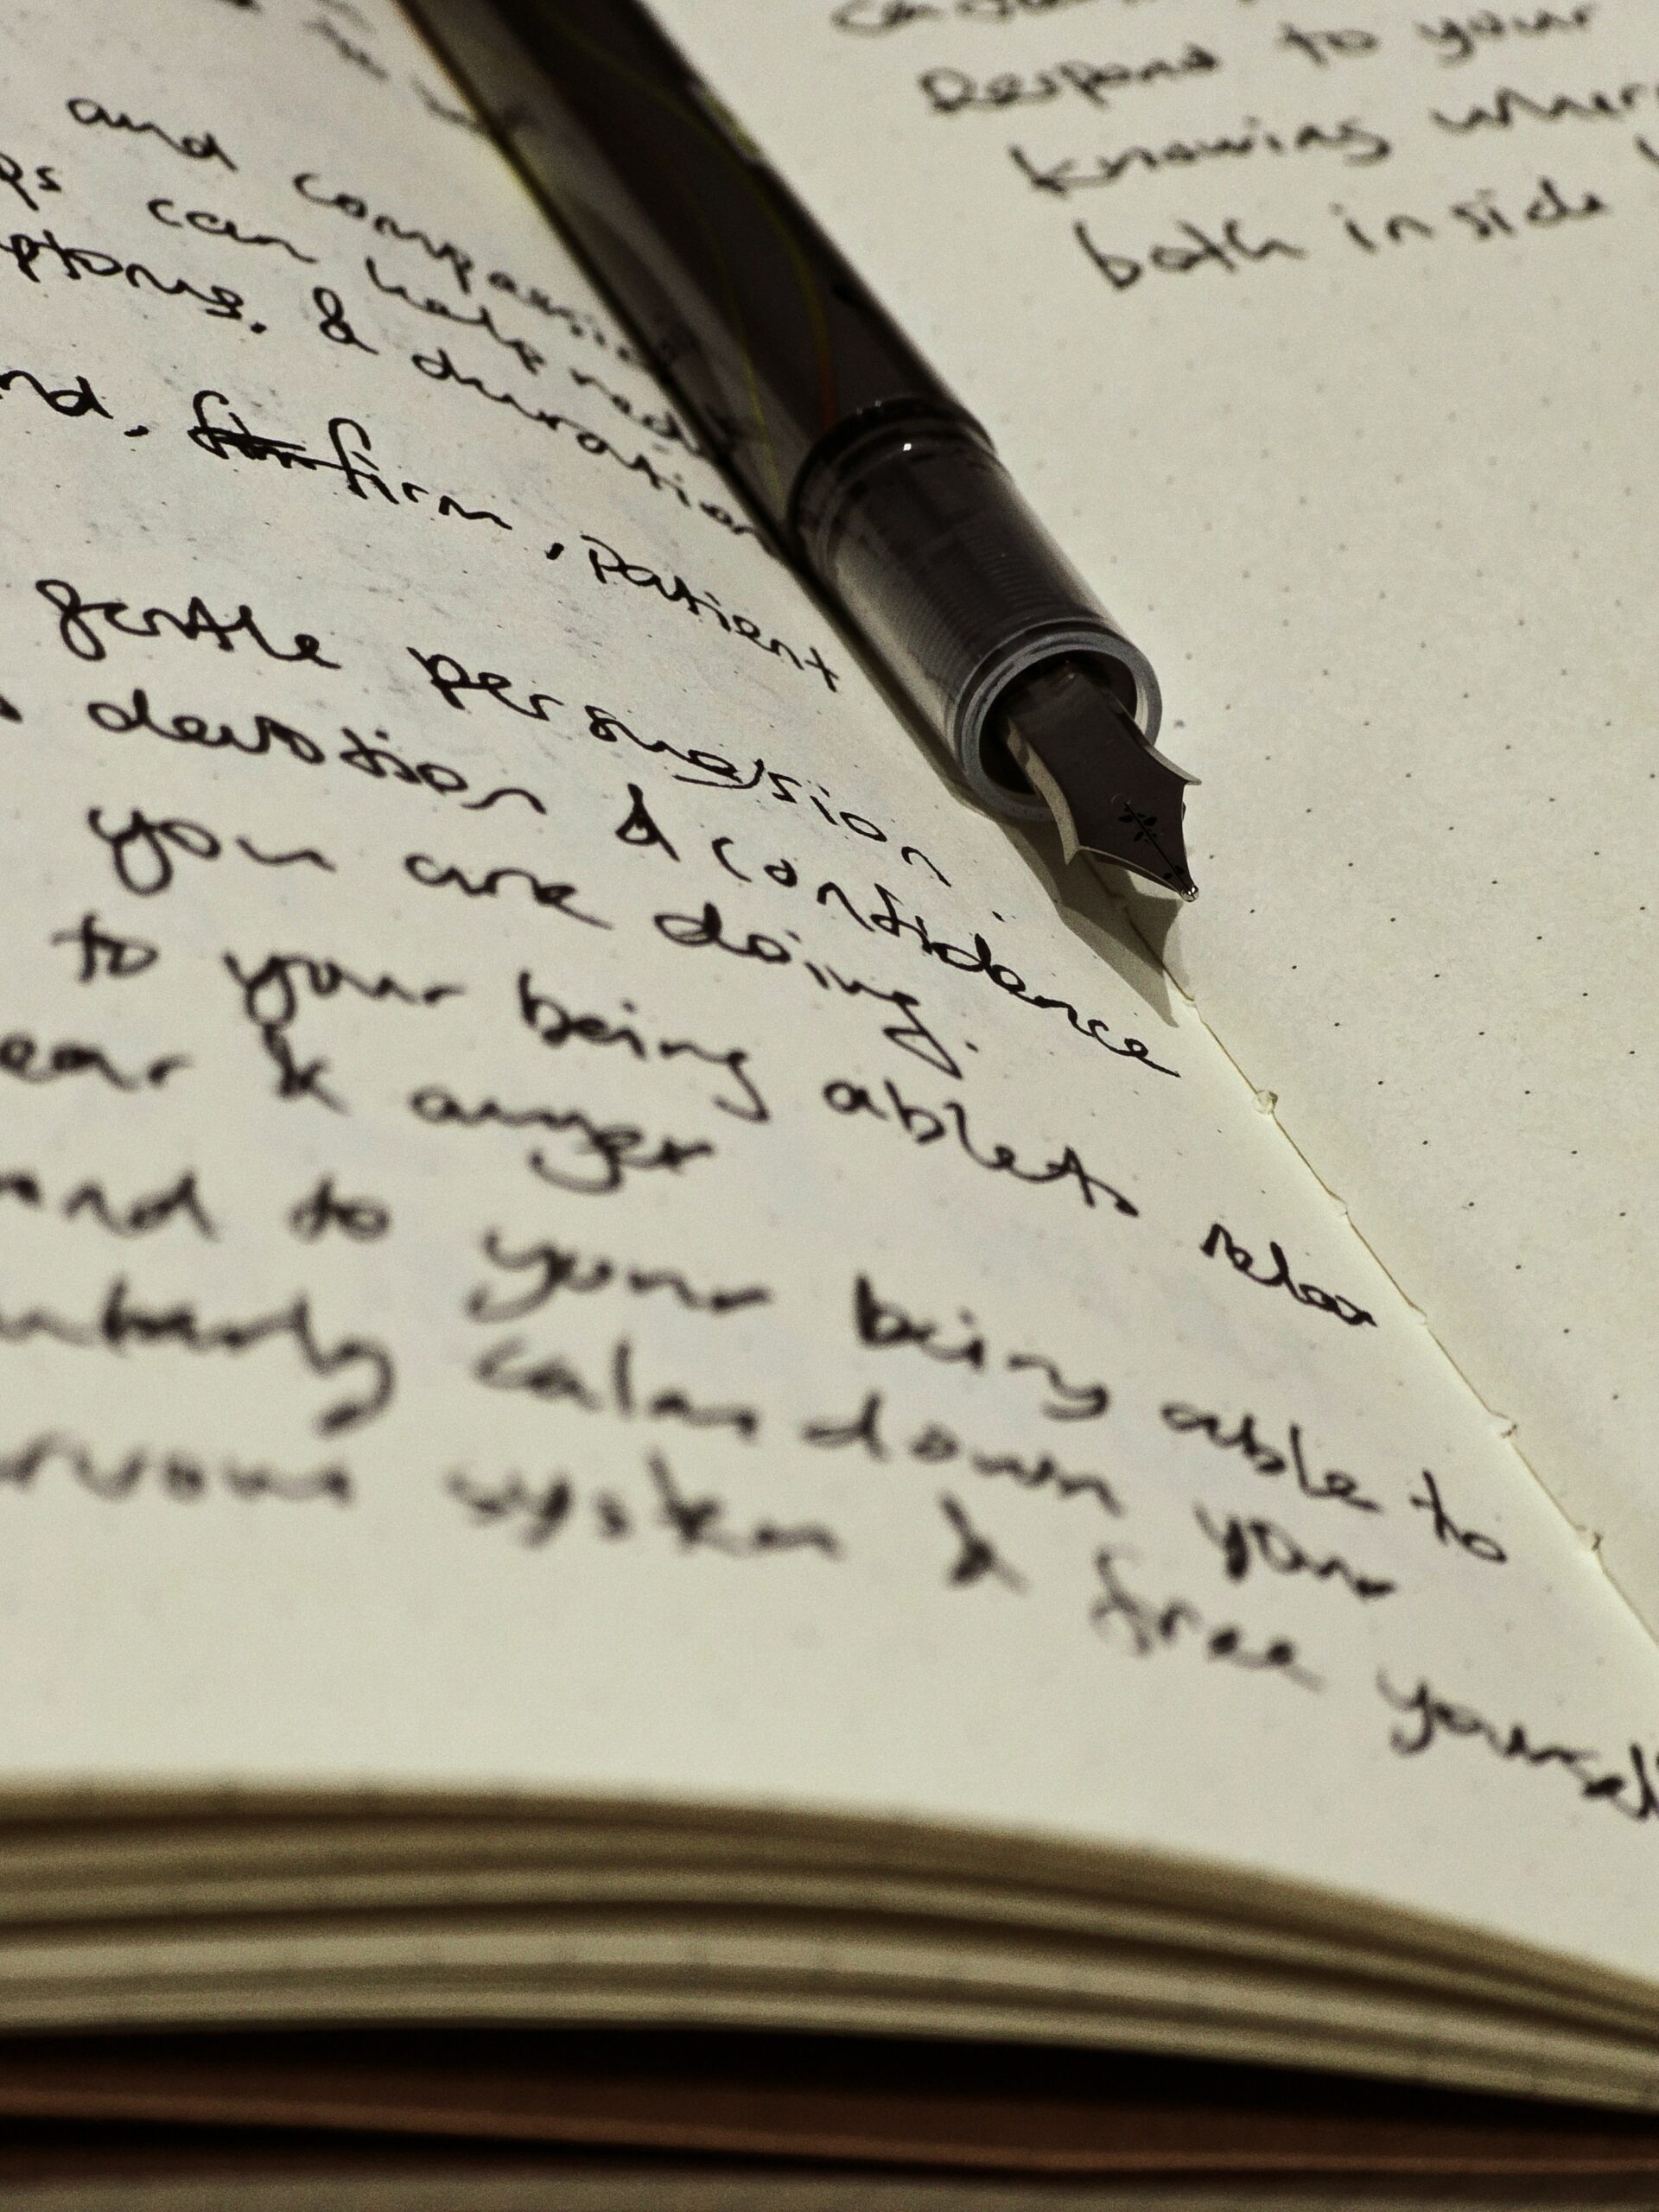 and compassio
ps can help red
ptoms. & duration
nd, firm, patient
gentle persuasion
devotion & confidence
you are doing.
to your being able to relax
ear & anger
and to your being able to
utterly calm down your
rvous system & free yourself
Respond to your
knowing wher
both inside